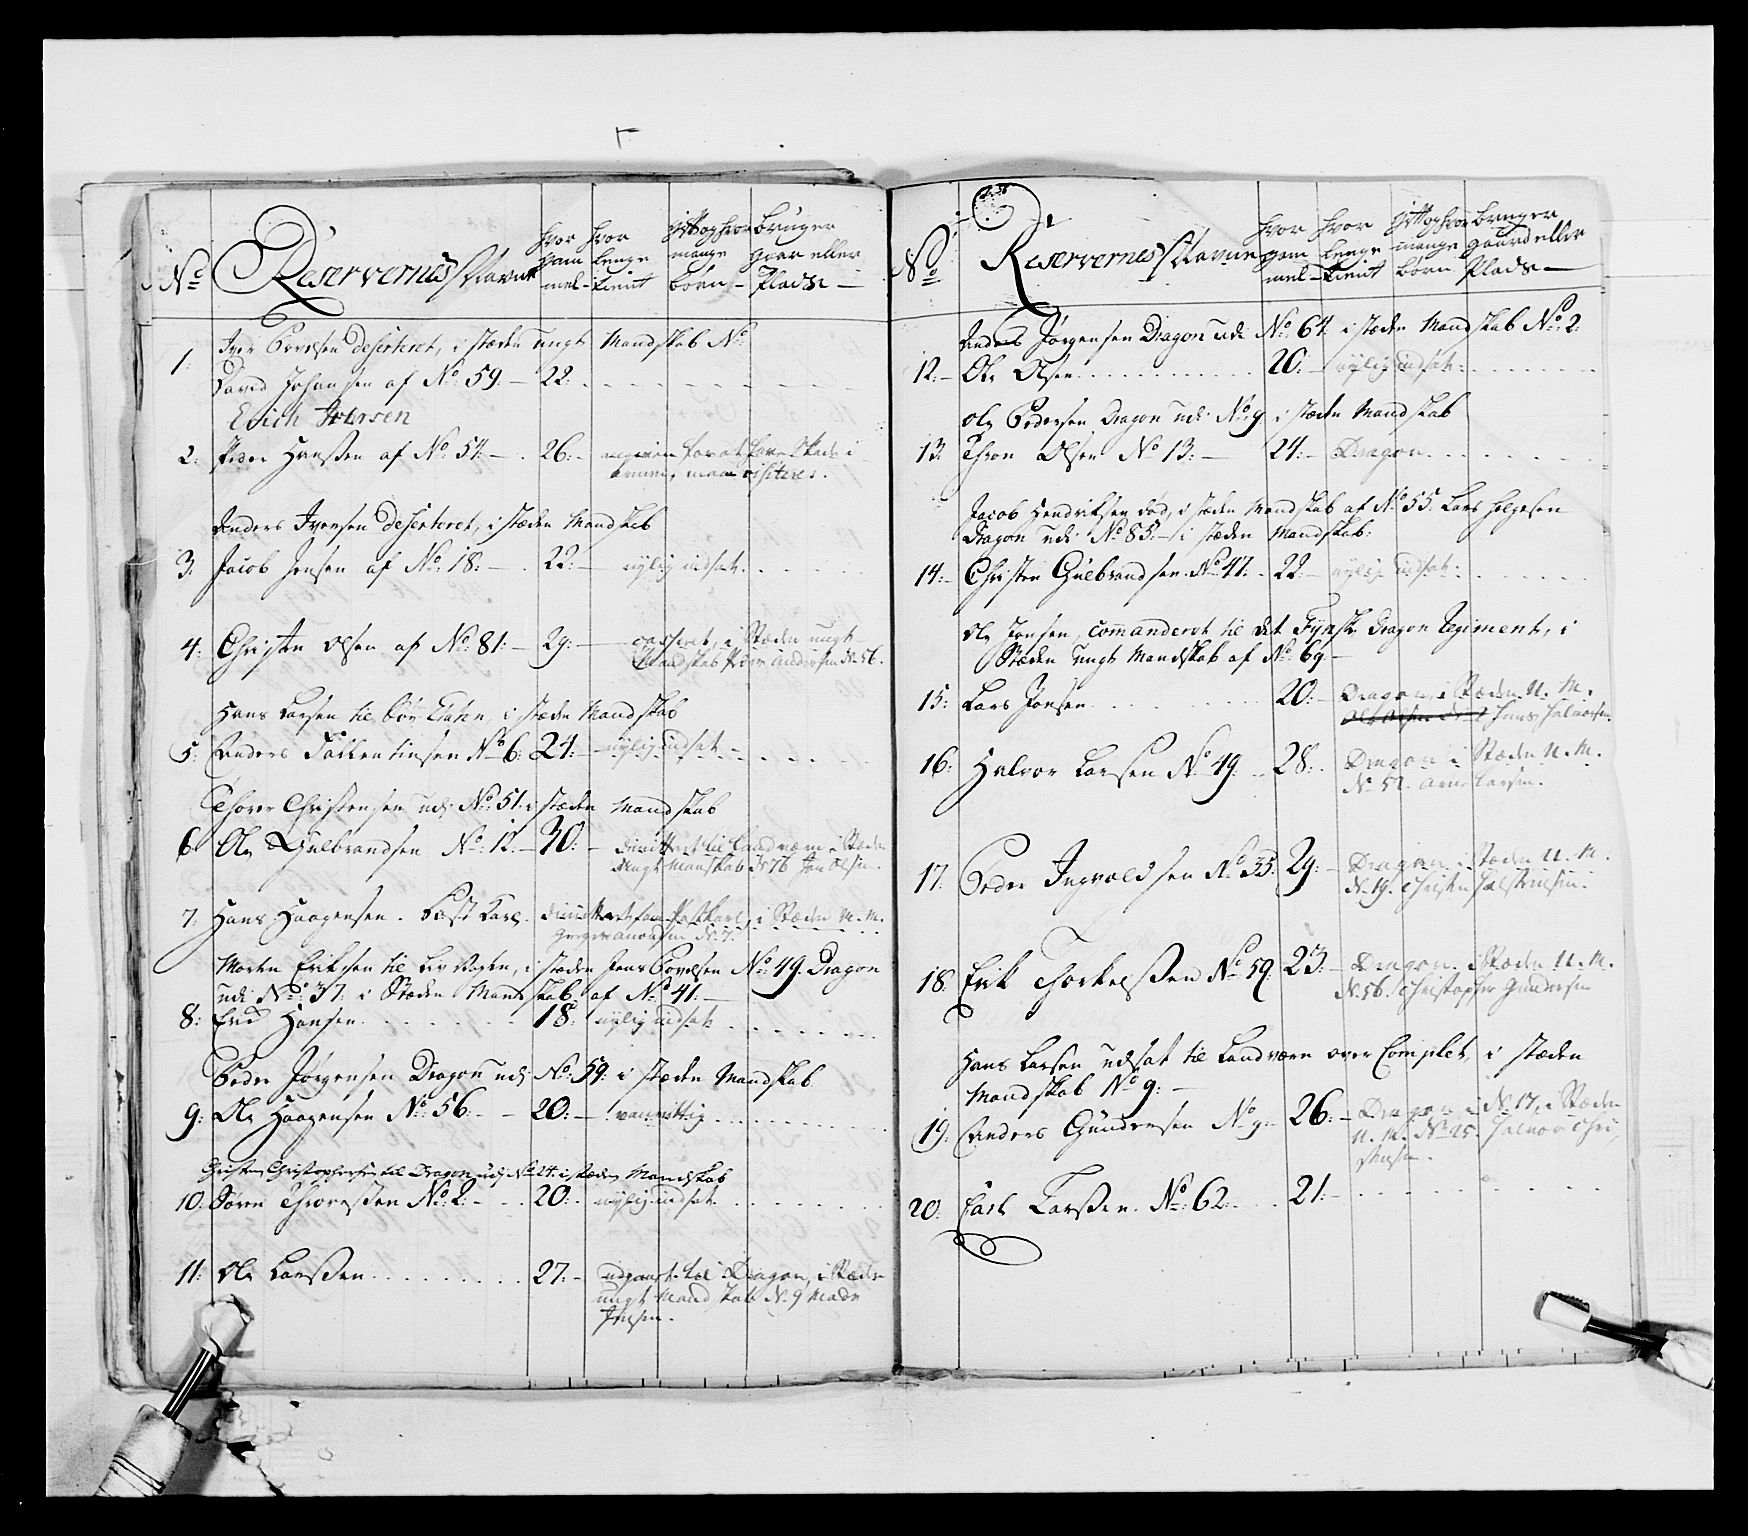 No Reservernes Navne hvor gam mel hvor lenge tient gift og hvor mange børn bruger gaar eller Plads
Iver Povelsen deserteret, i stæden ungt Mandskab No
1. David Johansen af No 59. 22.
Erich Iversen
2. Peder Hansen af No 54. 26. angiven for at have Skade i
armen, maae visiteres.
Anders Iversen deserteret, i stæden Mandskab
3. Jacob Jensen af No 18. 22. nylig indsat.
4. Christen Olsen af No 81. 29. casseret, i Stæden ungt
Mandskab Peder Andersen No 56.
Hans Larsen til, i stæden Mandskab
5. Anders Falkentinsen No 6. 24. nylig indsat
Thorer Christensen udi No 51. i stæden Mandskab
6. Ole Gulbrandsen No 12. 30. dimittert til Landværn i Stæden
ungt Manskab No 76 Jon Olsen.
7. Hans Haagensen. Post Karl. dimittert som Postkarl, i Stæden U. M.
No 7.
Morten Eriksen til Liv Vagten, i stæden Jens Povelsen No 49. Dragon
udi No 37. i Stæden Mandskab af No 41.
8. Erik Hansen 18. nylig indsat
Peder Jørgensen Dragon udi No 59. i stæden Mandskab
9. Ole Haagensen No 56. 20. vanvittig
Christen Christophersen til Dragon udi No 24. i stæden Mandskab
10. Søren Thoresen No 2. 20. nylig indsat
11. Ole Larsen 27. udgaaet til Dragon, i Stæden
ungt Mandskab No 9 Mads
Jensen.
No Reservernes Navne hvor gam mel hvor lenge tient gift og hvor mange børn bruger gaard eller Plads
Anders Jørgensen Dragon udi No 64. i stæden Mandskab No 2.
12. Ole Olsen 20. nylig indsat.
Ole Pedersen Dragon udi No 9 i stæden Mandskab
13. Thron Olsen No 13. 24. Dragon
Jacob Hendriksen død, i stæden Mandskab af No 55. Lars Helgesen
Dragon udi No 85. i stæden Mandskab.
14. Christen Gulbrandsen No 47. 22. nylig indsat.
Ole Jonsen, commanderet til det Fynske Dragon Regiment, i
Stæden ungt Mandskab af No 69.
15. Lars Jonsen 20. Dragon, i Stæden U. M.
Hans Halvorsen.
16. Halvor Larsen No 49. 28. Dragon i Stæden U. M.
No 52. Arne Larsen.
17. Peder Ingvoldsen No 35. 29. Dragon i Stæden U. M.
No 19. Christen Halsteensen.
18. Erik Thorkelsen No 59. 23. Dragon. i Stæden U. M.
No 56. Christopher Gundersen
Hans Larsen udsat til Landværn over Complet, i stæden
Mandskab No 9.
19. Anders Gundersen No 9. 26. Dragon i No 17, i Stæden
U. M. No 25. Halvor Chri
stensen.
20. Carl Larsen. No 62. 21.